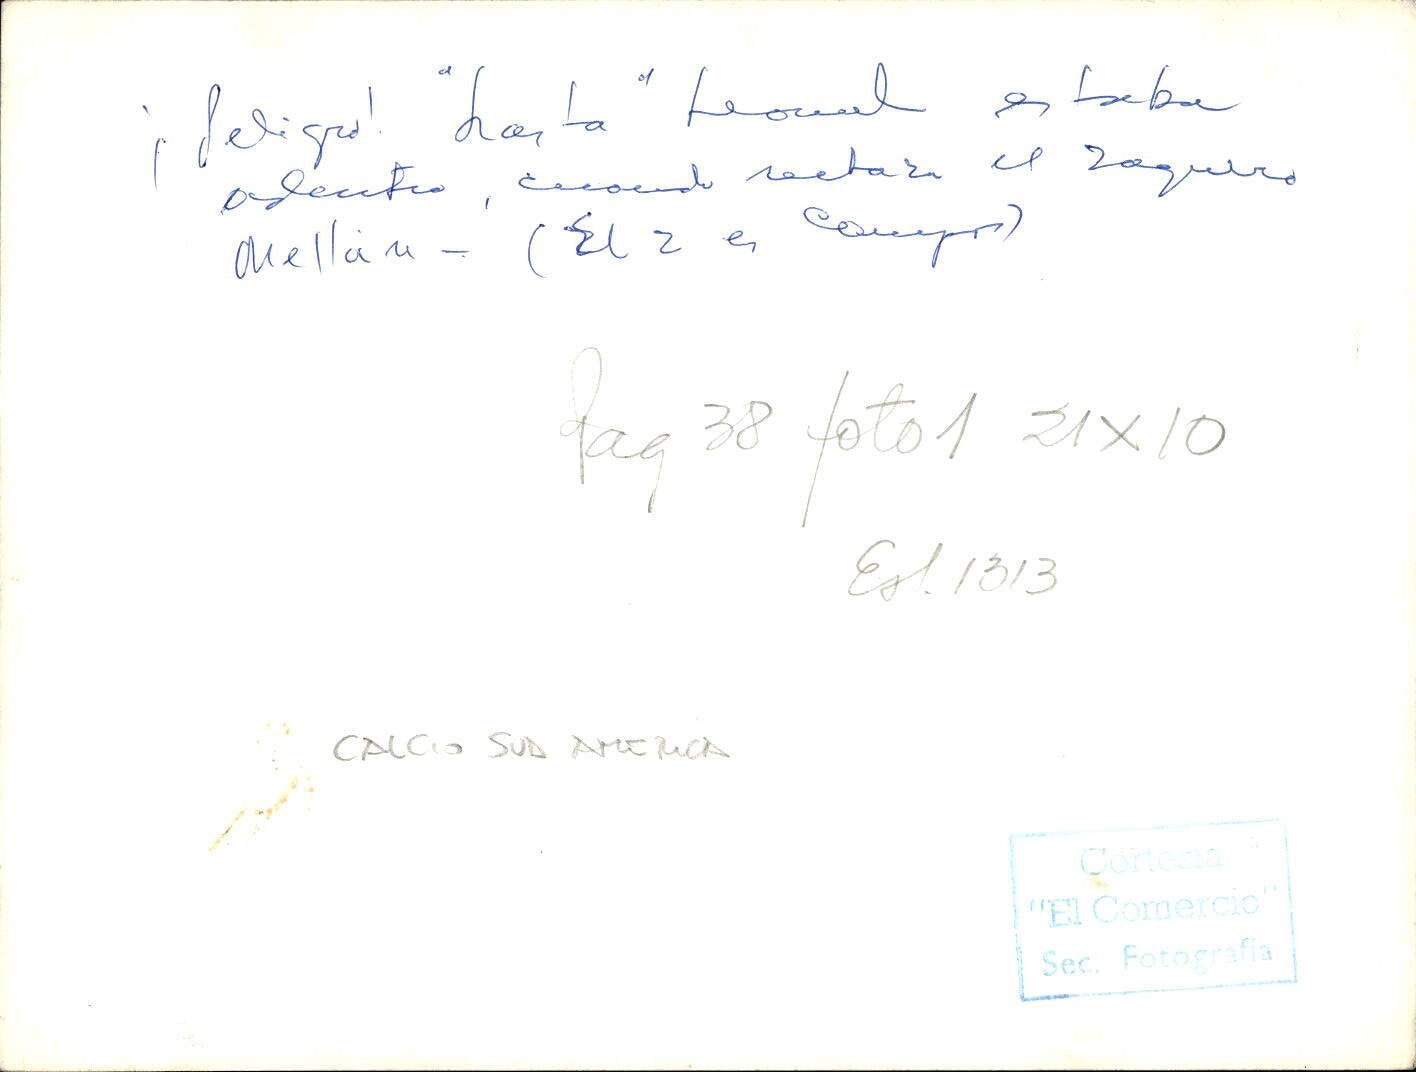 ¡Peligro! "Hasta" Leonel estaba
adentro, cuando rechaza el zaguero
Mellán - (El 2 es Campos)
Pag 38 foto 1 21x10
Est. 1313
CALCIO SUD AMERICA
Cortesia
"El Comercio"
Sec. Fotografía